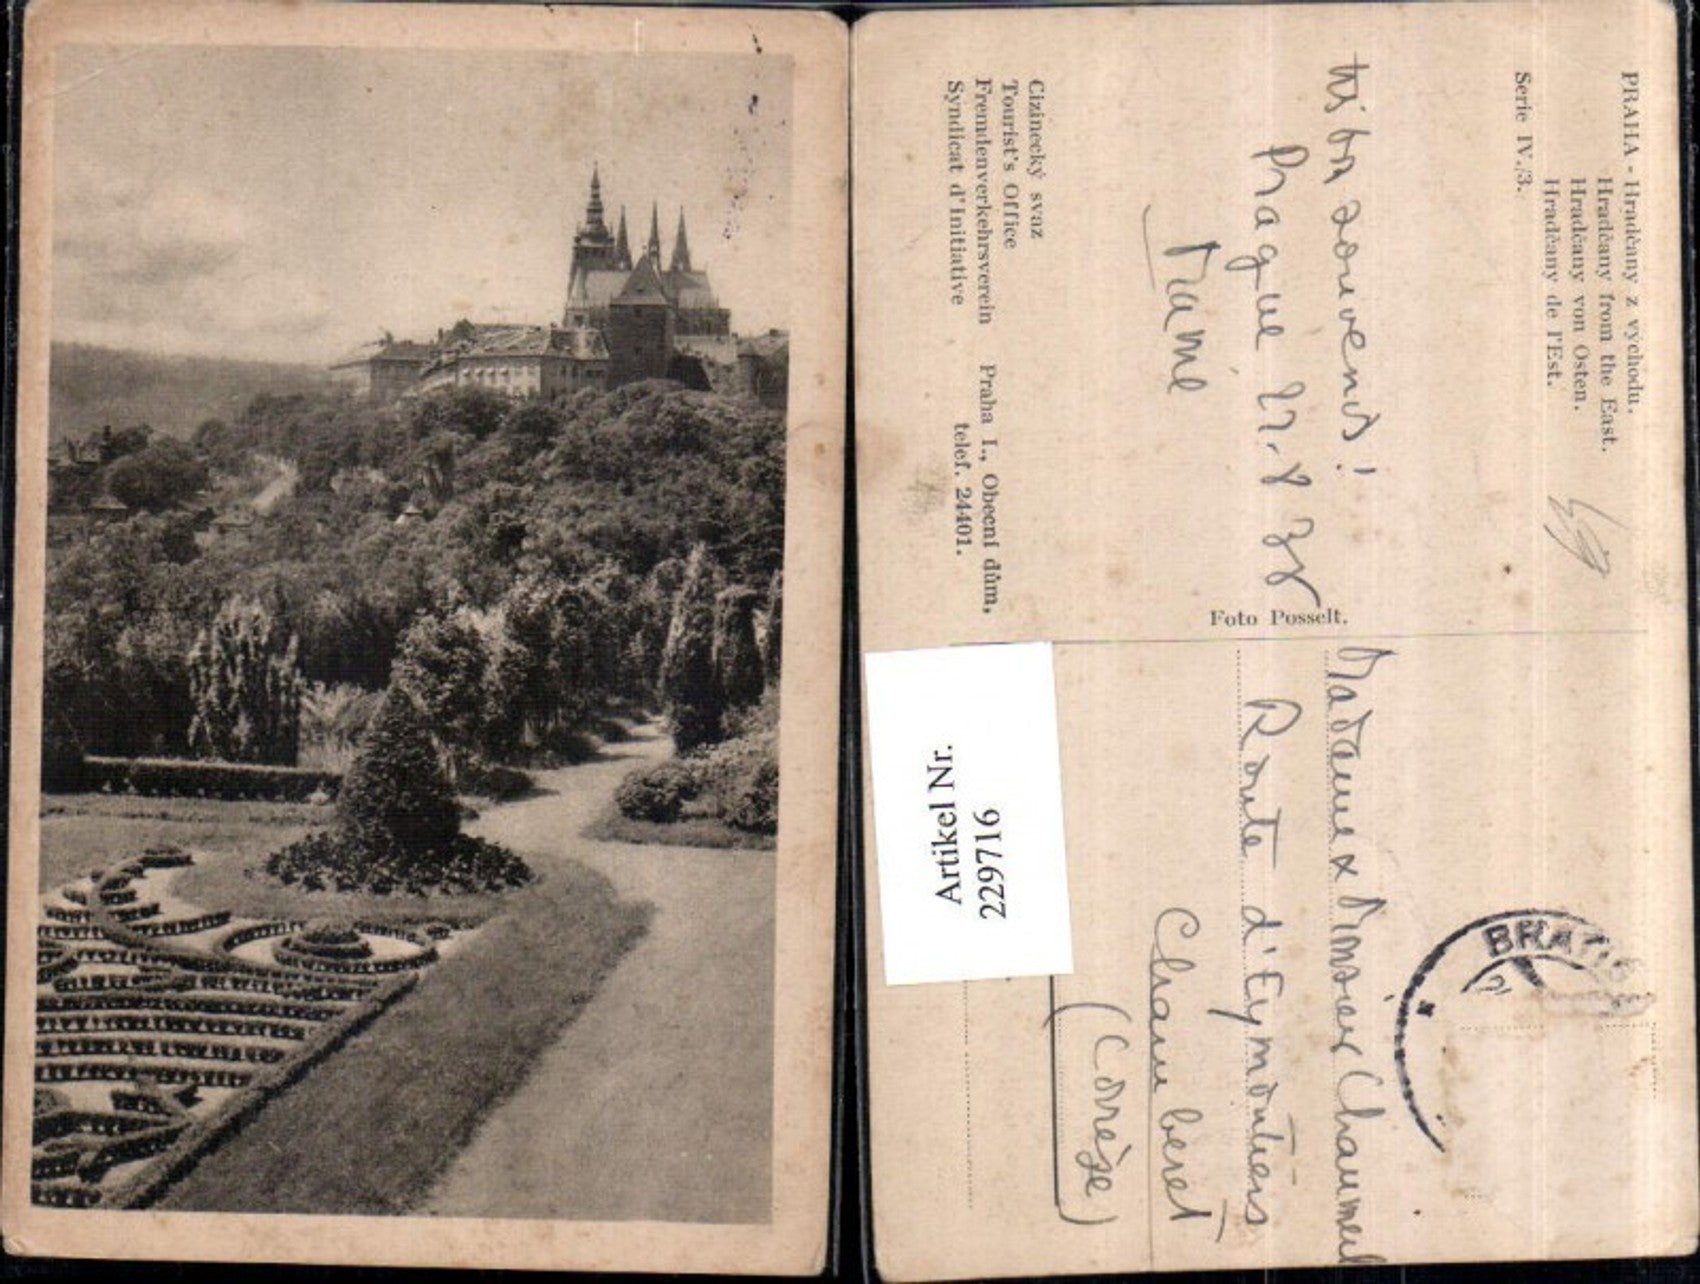 PRAHA - Hradčany z východu.
Hradčany from the East.
Hradčany von Osten.
Hradčany de l'Est.
Serie IV./3.
très bons souvenirs!
Prague 27.8 38
Mamie
Cizinecký svaz
Tourist's Office
Fremdenverkehrsverein Praha I., Obecní dům,
Syndicat d'Initiative telef. 24401.
Foto Posselt.
BRATI
Madame & Monsieur Chaumeil
Route d'Eymoutiers
Chamberet
(Corrèze)
Artikel Nr.
2229716